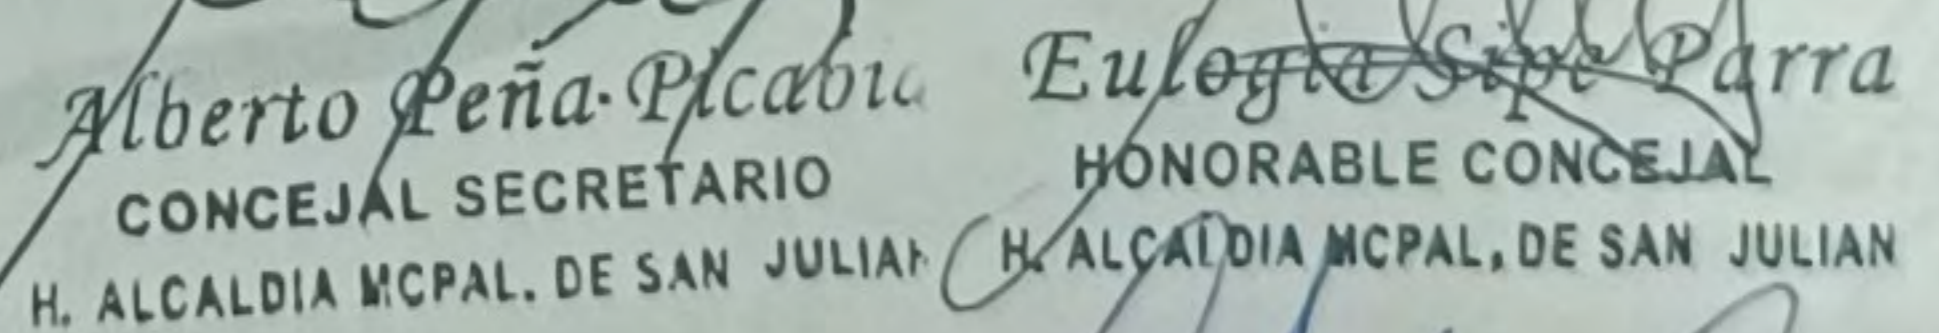 Alberto Peña Picabia
CONCEJAL SECRETARIO
H. ALCALDIA MCPAL. DE SAN JULIAN
Eulogia Sipe Parra
HONORABLE CONCEJAL
H. ALCALDIA MCPAL. DE SAN JULIAN